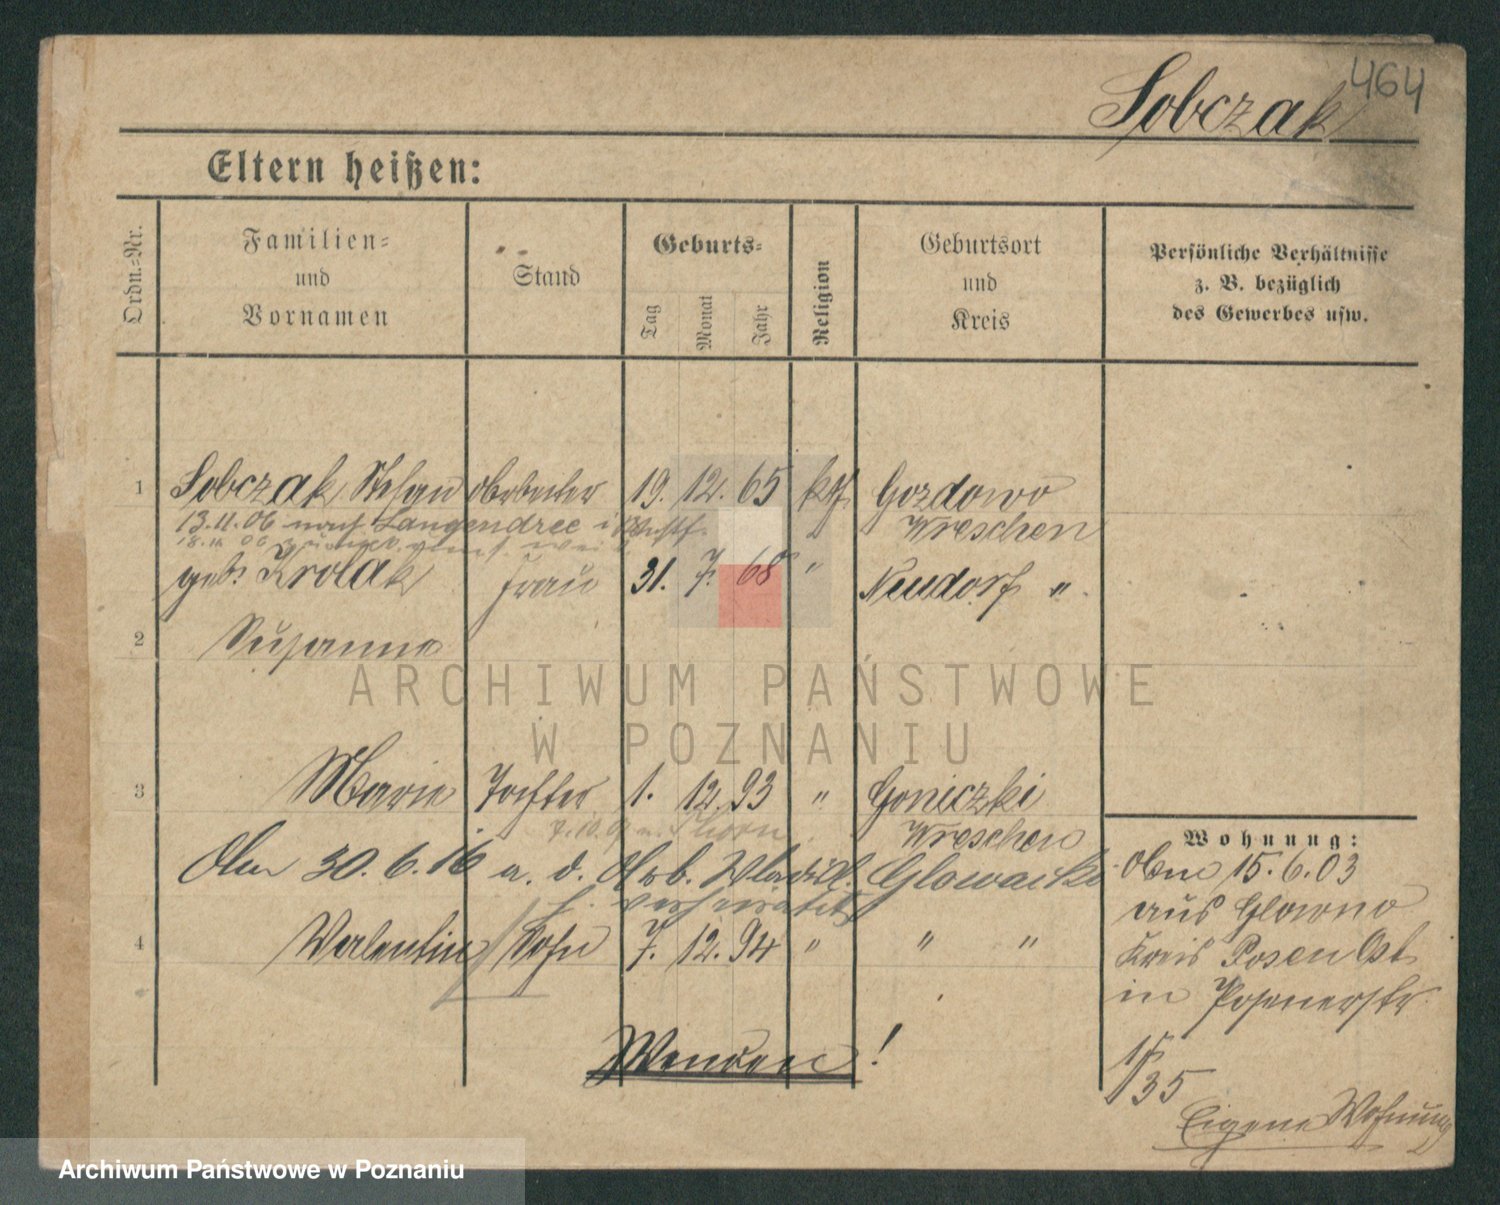 464
Sobczak
Eltern heißen:
Ordn.-Nr.
Familien-
und
Vornamen
Stand
Geburts-
Tag
Monat
Jahr
Religion
Geburtsort
und
Kreis
Persönliche Verhältnisse
z. B. bezüglich
des Gewerbes usw.
1 Sobczak Stefan Arbeiter 19. 12. 65 kth. Gozdowo
13.11.06 nach Langendree i/Westf. " Wreschen
18.11.06
geb. Krolak Frau 31. 7. 68 " Neudorf "
2 Susanna
ARCHIWUM PAŃSTWOWE
W POZNANIU
3 Marie Tochter 1. 12. 93 " Goniczki
n. Thorn Wreschen
Am 30.6.16 a. d. Arb. Wladisl. Glowacki
verheiratet
4 Valentin Sohn 7. 12. 94 " " "
Wenden!
Wohnung:
Am 15.6.03
aus Glowno
Kreis Posen Ost
in Posenerstr.
35
Eigene Wohnung
Archiwum Państwowe w Poznaniu